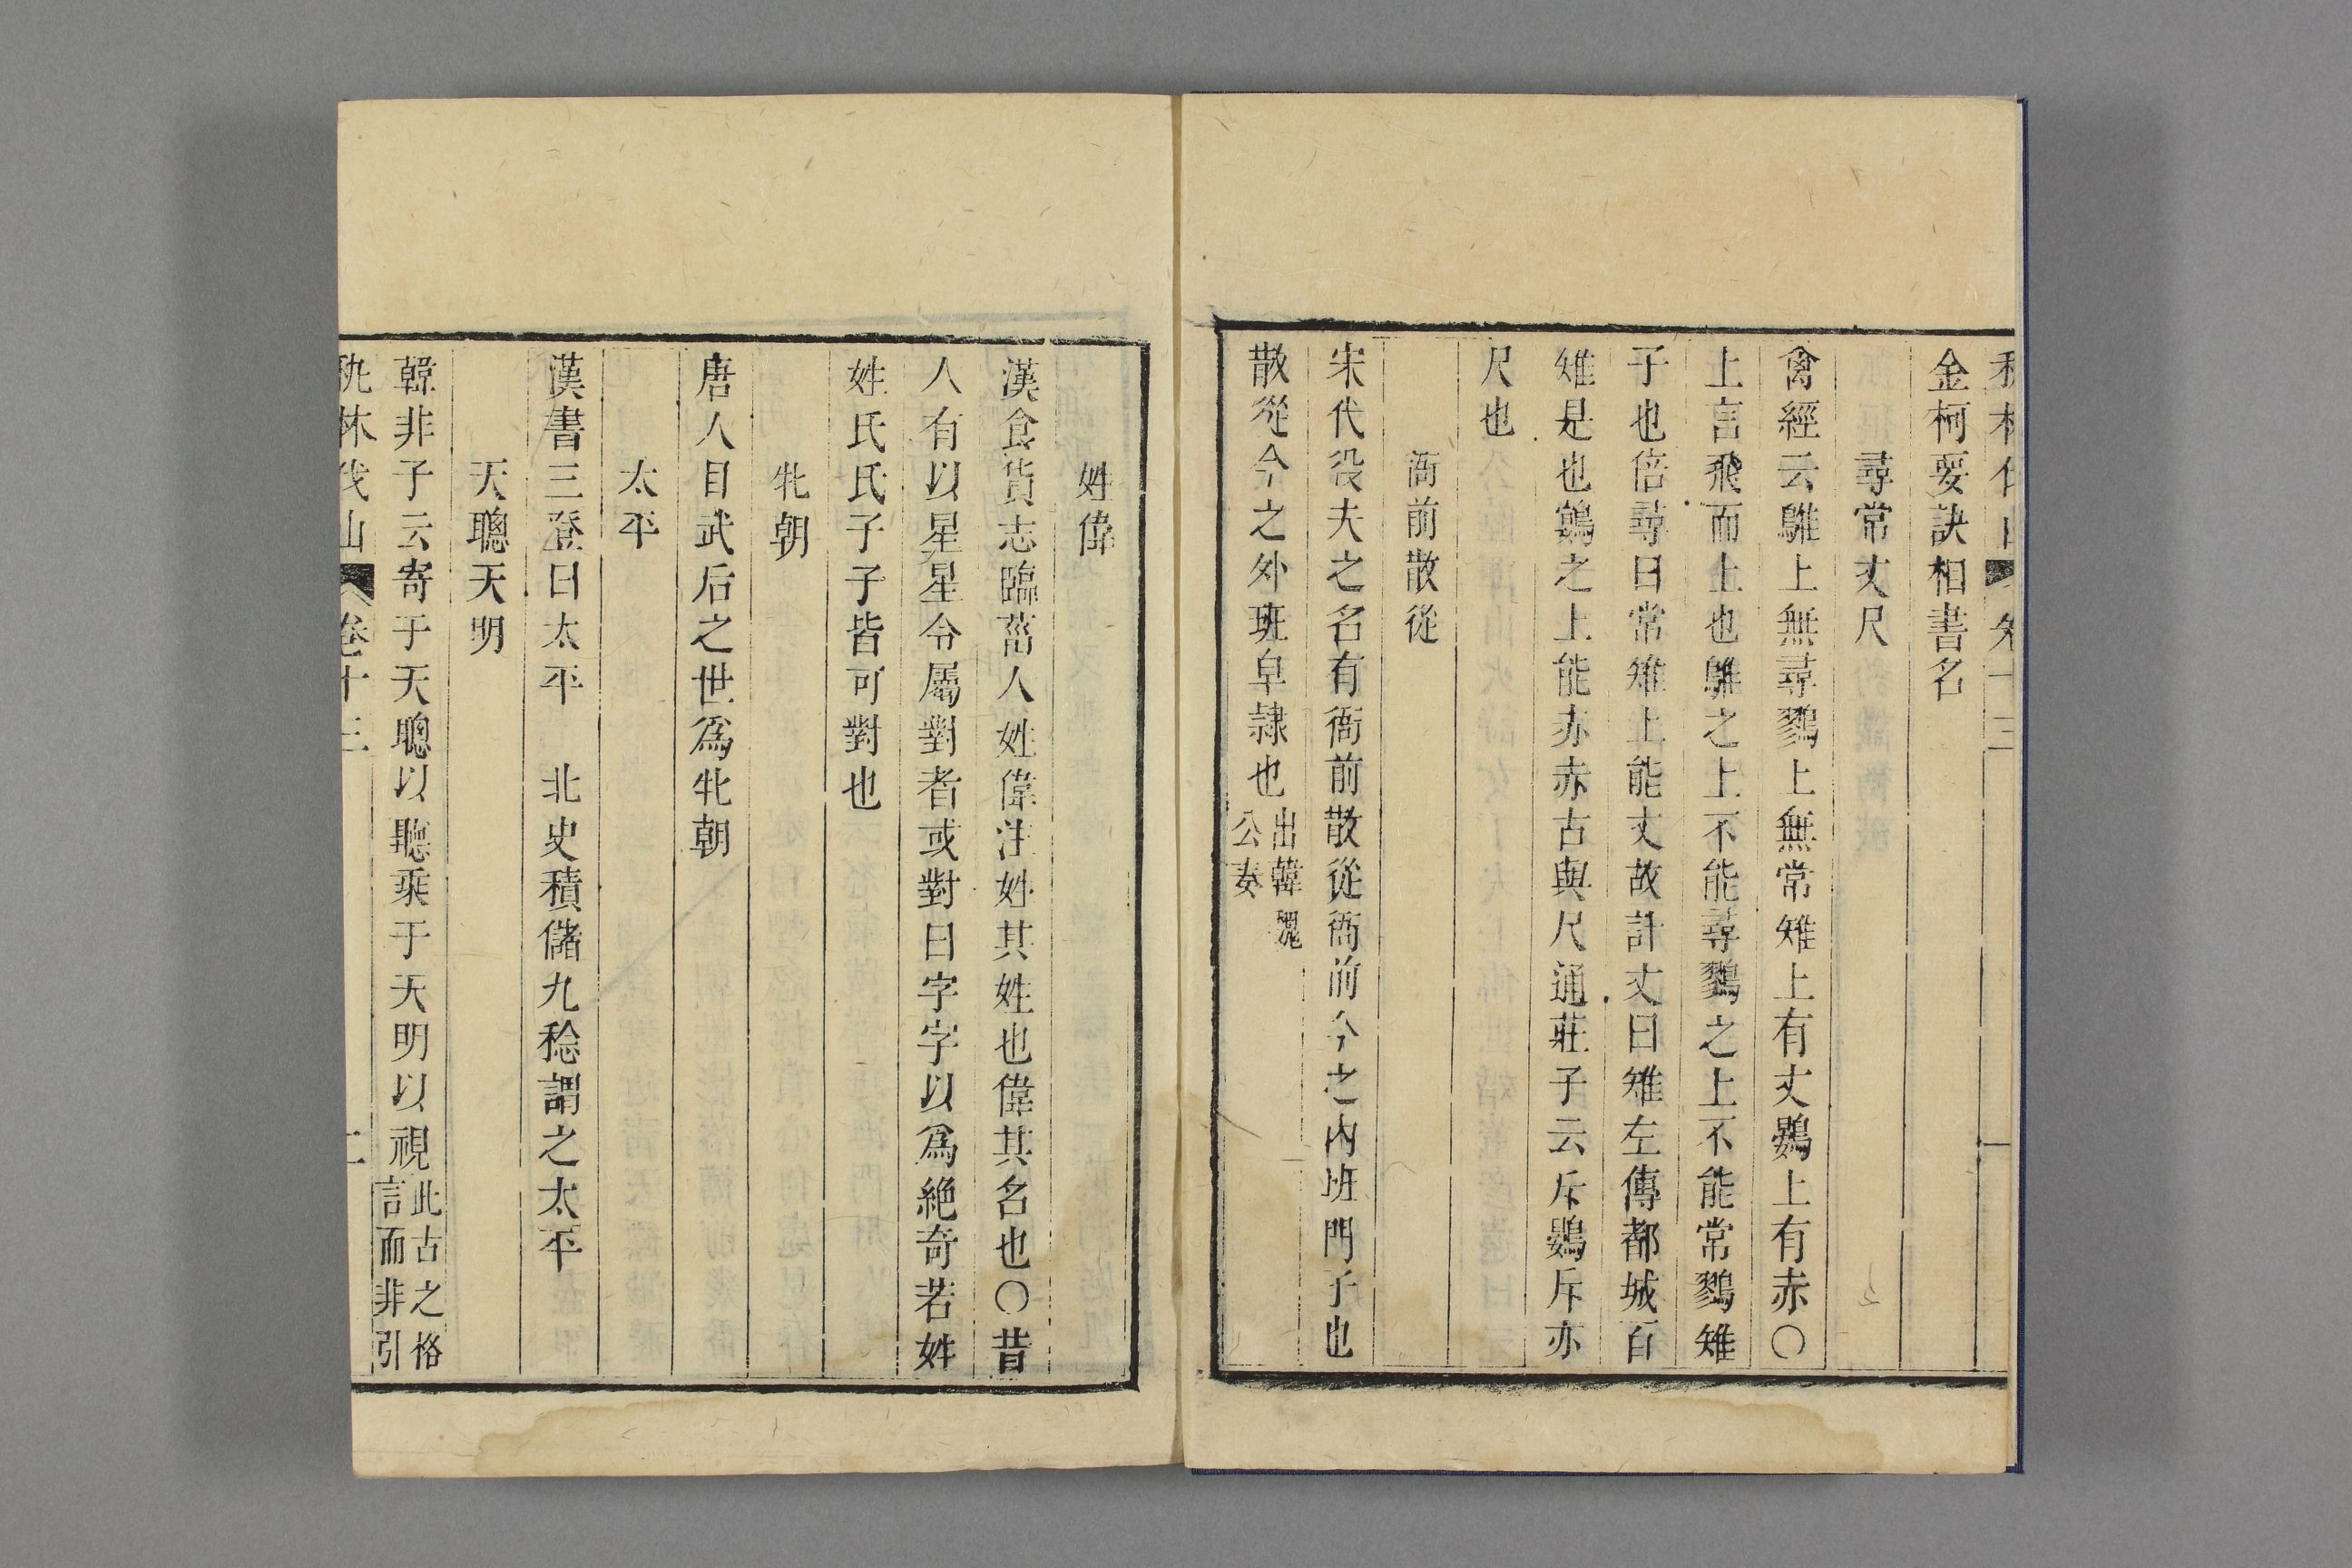 金柯要訣相書名
尋常丈尺
禽經云鵻上無尋鷚上無常雉上有丈鷃上有赤〇
上言飛而上也鵻之上不能尋鷚之上不能常鷚雉
子也倍尋曰常雉上能丈故計丈曰雉左傳都城百
雉是也鷃之上能赤赤古與尺通莊子云斥鷃斥亦
尺也
衙前散從
宋代役夫之名有衙前散從衙前今之內班門子也
散從今之外班皁隷也出韓魏
公奏
姓偉
漢食貨志臨菑人姓偉注姓其姓也偉其名也〇昔
人有以星星令屬對者或對曰字字以爲絶奇若姓
姓氏氏子子皆可對也
牝朝
唐人目武后之世爲牝朝
太平
漢書三登曰太平 北史積儲九稔謂之太平
天聰天明
韓非子云寄于天聰以聽乘于天明以視此古之格
言而非引
秇林伐山 卷十三 二